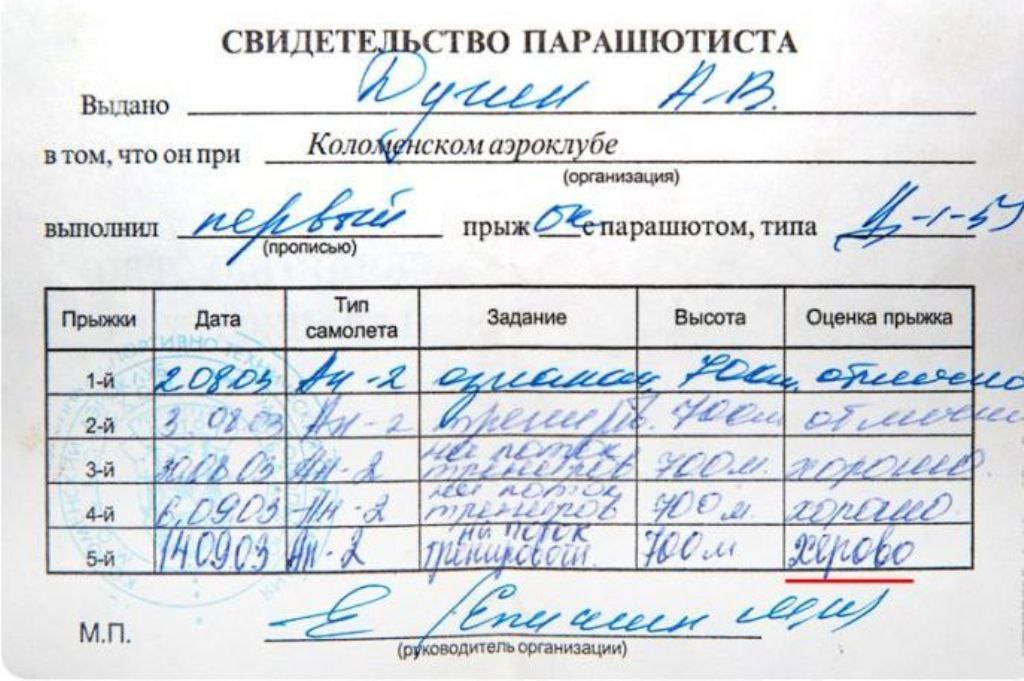 СВИДЕТЕЛЬСТВО ПАРАШЮТИСТА
Выдано А.В.
в том, что он при Коломенском аэроклубе
(организация)
выполнил первый прыжок с парашютом, типа Д-1-5У
(прописью)
Прыжки Дата Тип самолета Задание Высота Оценка прыжка
1-й 2.08.03 Ан-2 ознаком. 700м. отлично
2-й 3.08.03 Ан-2 трениров. 700м отлично
на поток
3-й 30.08.03 Ан-2 трениров 700м. хорошо.
на поток
4-й 6.09.03 Ан-2 трениров 700м. хорошо.
на поток
5-й 14.09.03 Ан-2 700м херово
М.П.
(руководитель организации)